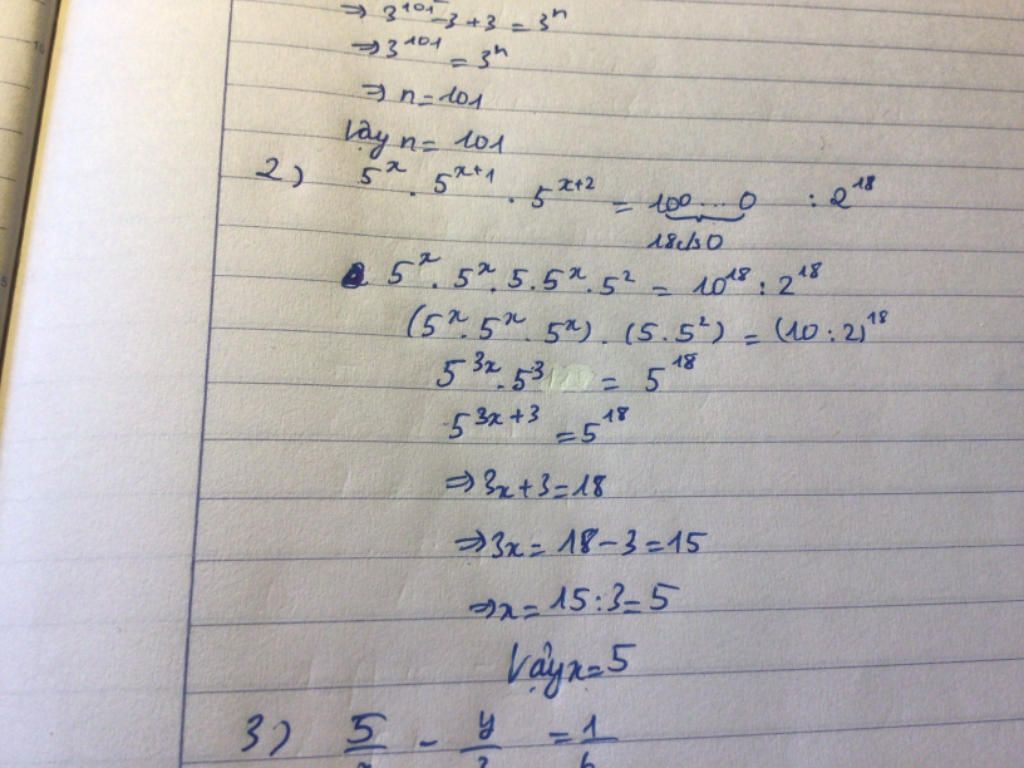 ⇒ 3^101 - 3 + 3 = 3^n
⇒ 3^101 = 3^n
⇒ n = 101
Vậy n = 101
2) 5^x . 5^x+1 . 5^x+2 = 100...0 : 2^18
18 c/s 0
5^x . 5^x . 5 . 5^x . 5^2 = 10^18 : 2^18
(5^x . 5^x . 5^x) . (5 . 5^2) = (10 : 2)^18
5^3x . 5^3 = 5^18
5^3x+3 = 5^18
⇒ 3x + 3 = 18
⇒ 3x = 18 - 3 = 15
⇒ x = 15 : 3 = 5
Vậy x = 5
3) 5 - y = 1